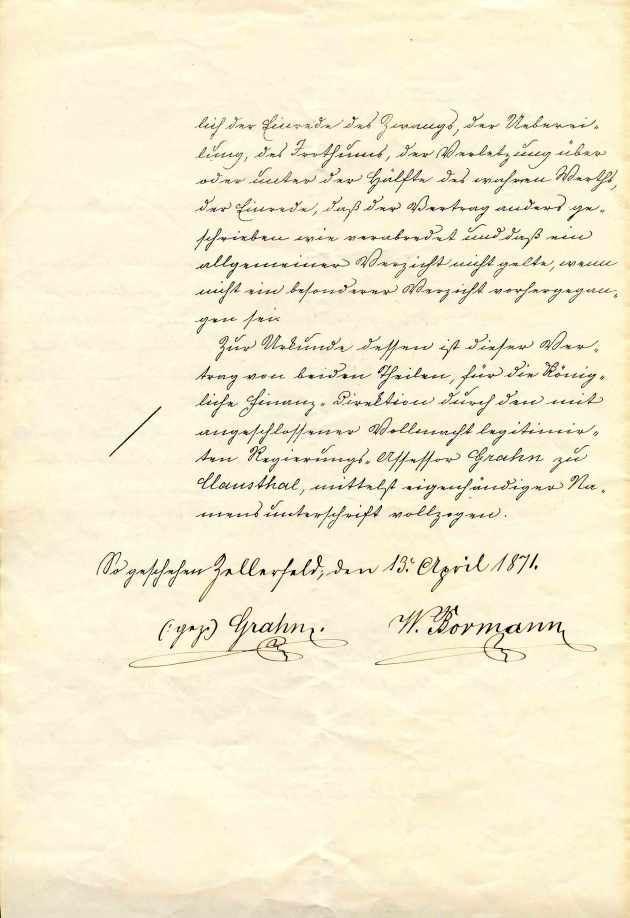 lich der Einrede des Zwangs, der Ueberei-
lung, des Irrthums, der Verletzung über
oder unter der Hälfte des wahren Werths,
der Einrede, daß der Vertrag anders ge-
schrieben wie verabredet und daß ein
allgemeiner Verzicht nicht gelte, wenn
nicht ein besonderer Verzicht vorhergegan-
gen sei.
Zur Urkunde dessen ist dieser Ver-
trag von beiden Theilen, für die König-
liche Finanz-Direktion durch den mit
angeschlossener Vollmacht legitimir-
ten Regierungs-Assessor Grahn zu
Clausthal, mittelst eigenhändiger Na-
mensunterschrift vollzogen.
So geschehen Zellerfeld, den 13. April 1871.
(: gez:) Grahn. W. Bormann